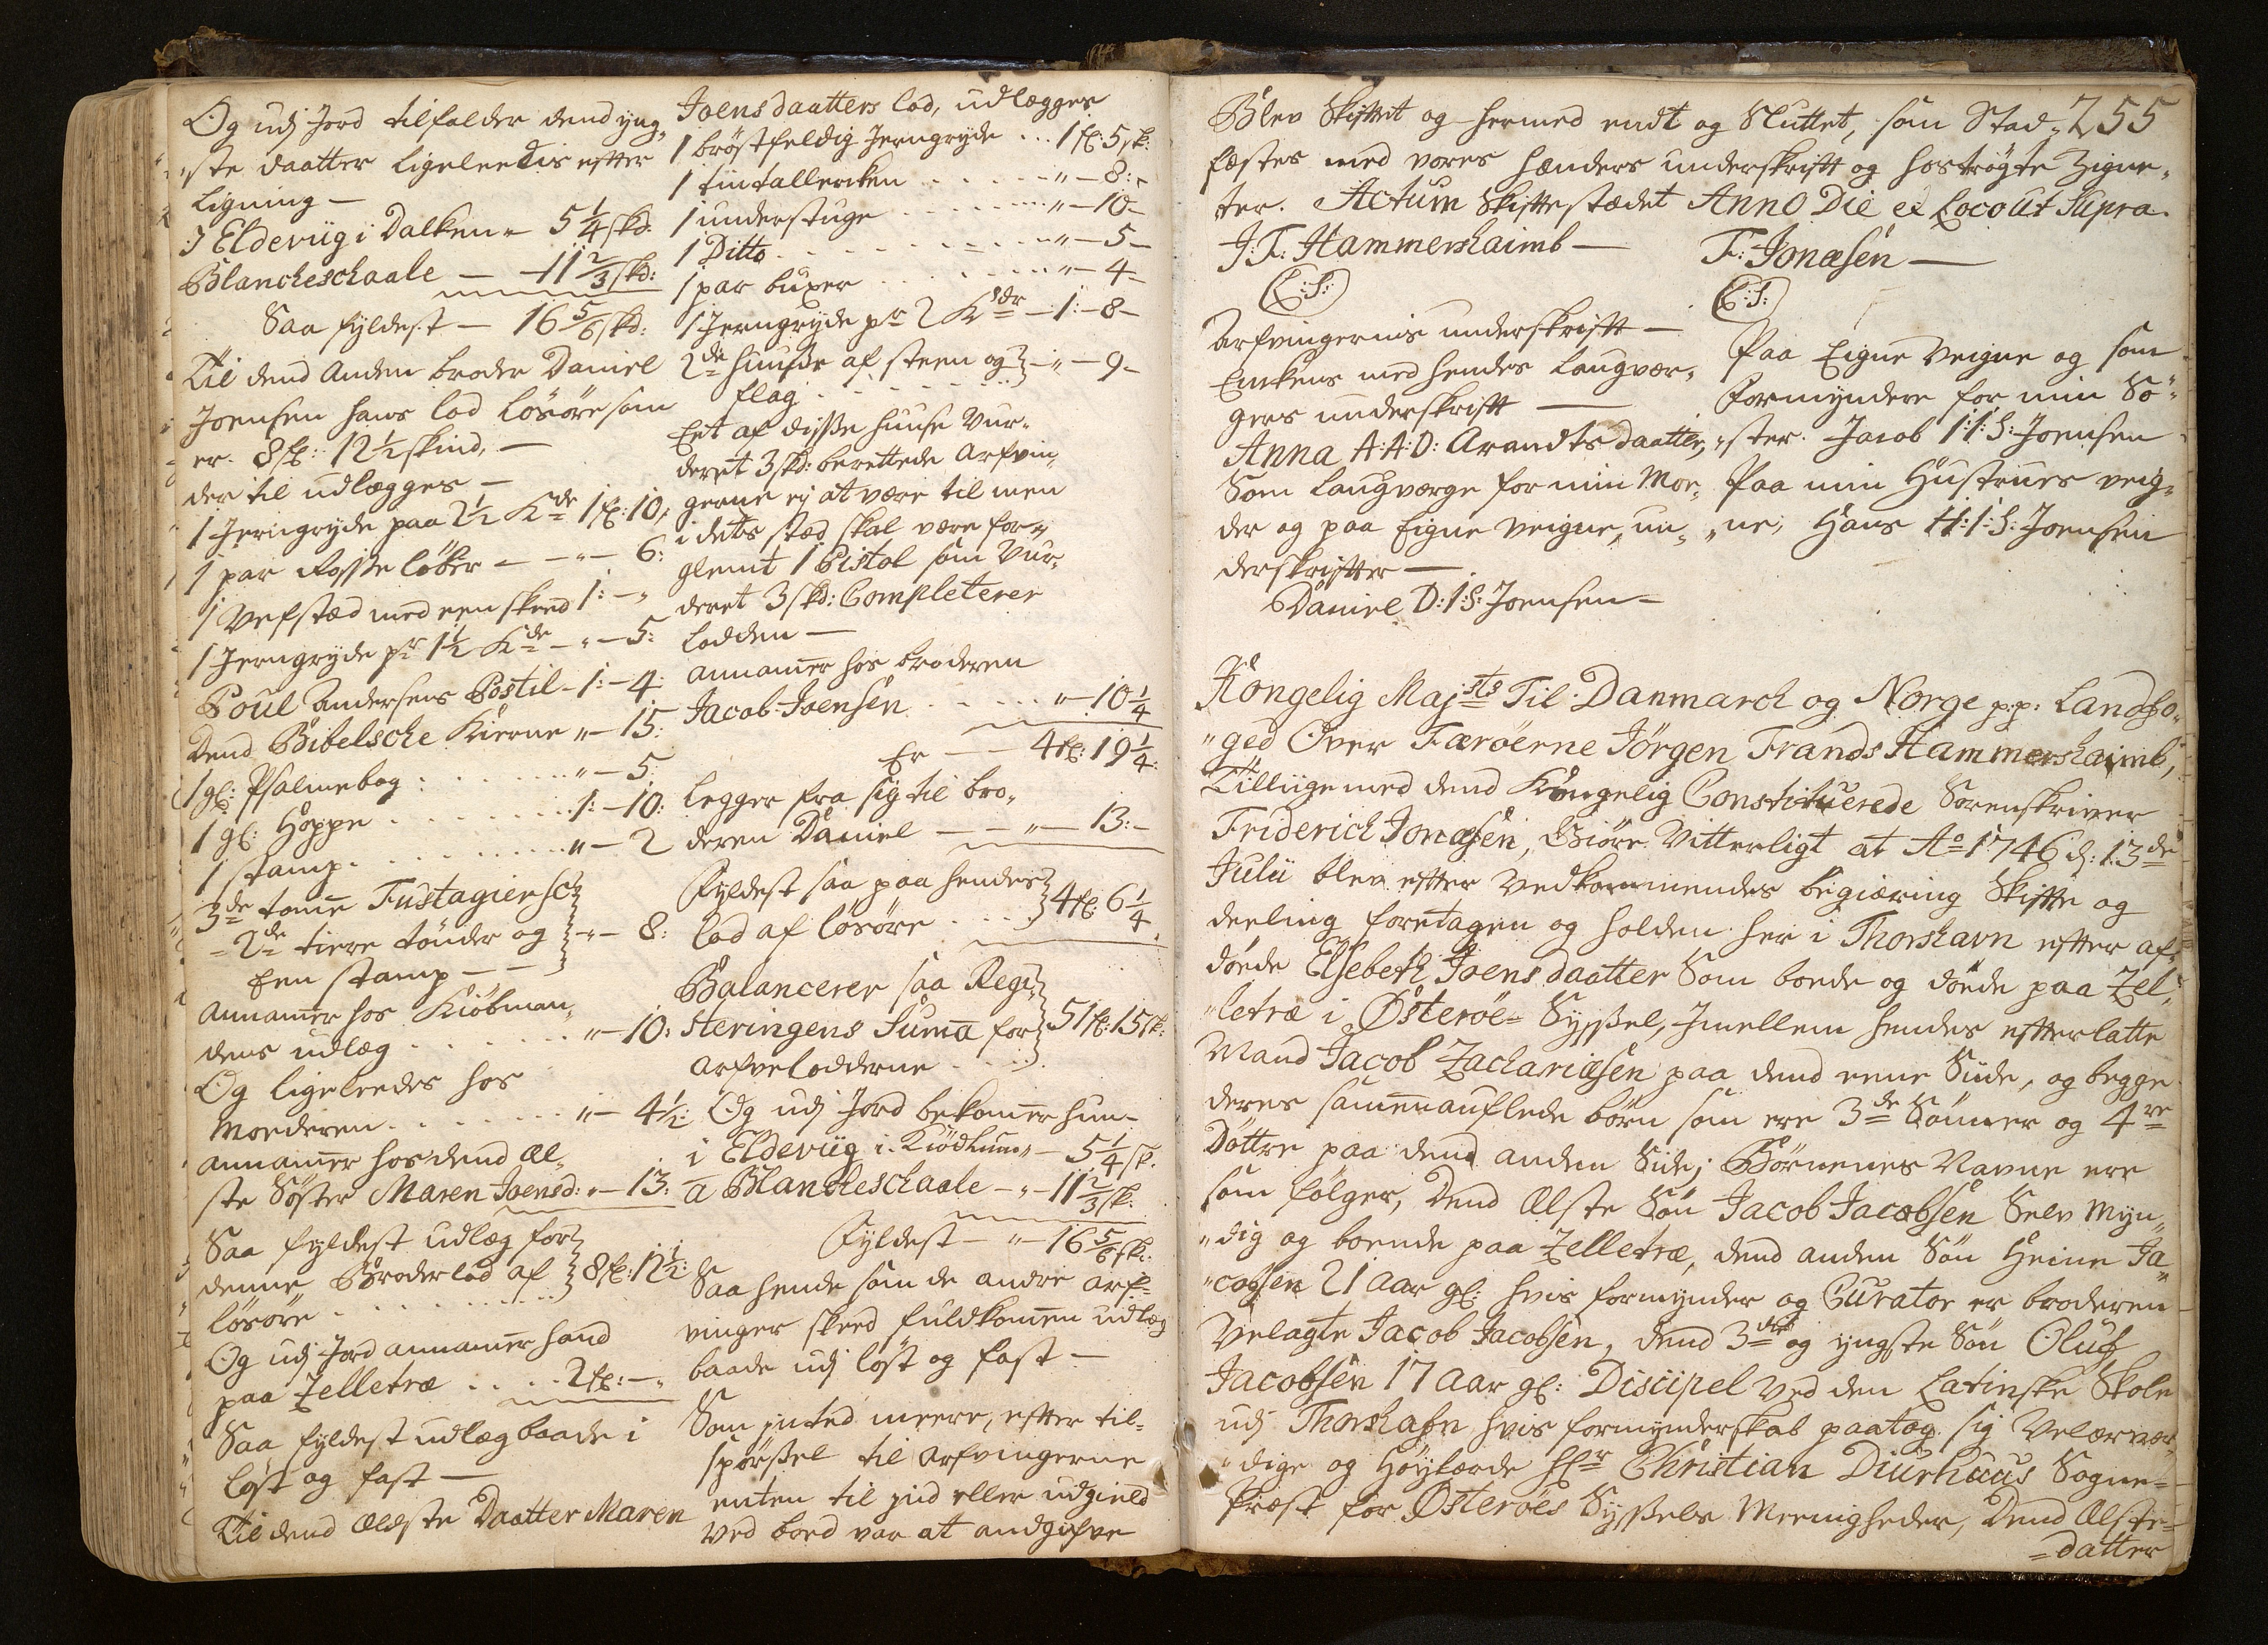 Og udj Jord tilfalder dend yng,,
,,ste daatter ligeleedis efter
Ligning —
J Elderiig i Dalken - 5 1/4 skd:
Blancheschaale — - 11 2/3 skd:
Saa fyldest — 16 5/6 skd:
Til dend Anden broder Daniel
Joensen hans lod Lösöre som
er. 8 fl: 12 1/2 skind, —
der til udlægges —
1 Jerngryde paa 2 1/2 Kde 1 fl: 10,
1 par Røsse løber - - „ - 6:
1 Vefstæd med een skeed 1: - „
1 Jerngryde pr 1 1/2 Kde - „ - 5:
Poul Andersens Postil - 1: - 4:
Dend Bibelsche Kierne „ - 15:
1 gl: Psalmebog : . . . . . „ - 5:
1 gl: Hoppe . . . . . . 1: - 10:
1 stamp. . . . . . . . „ - 2
3de tomme Fustagier sc:
- 2de tiere tönder og } - „ - 8:
Een stamp - -
annammer hos Kiöbman,,
dens udlæg . . . . . . „ - 10:
Og ligeleedes hos
Moederen . . . . . . „ - 4 1/2:
annammer hos dend Æl,,
ste Söster Maren Joensd: „ - 13:
Saa fyldest udlæg for
denne Broderlod af } 8 fl: 12 1/2:
lösöre . . . . . . .
Og udj Jord annammer hand
paa Zelletræ . . . . 2 fl: - „
Saa fyldest udlæg baade i
löst og fast —
Til dend Ældste Daatter Maren
Joensdaatters lod, udlægges
1 bröstfeldig Jerngryde . . 1 fl: 5 sk:
1 tintallercken . . . . . „ - 8: -
1 understuge . . . . . . „ - 10 -
1 Ditto . . . . . . . . „ - 5 -
1 par buxer . . . . . . „ - 4 -
1 Jerngryde pr 2 Kdr - 1: - 8 -
2de huuse af steen og } - „ - 9 -
flag . . . . . .
Eet af disse huuse Vur,,
deret 3 skd: berettede Arfvin,,
gerne ej at være til men
i dets stæd skal være for,,
glemt 1 Pistol som Vur,,
deret 3 skd: Completerer
Lodden —
annammer hos broderen
Jacob Joensen . . . . . „ - 10 1/4
Er - - 4 fl: 19 1/4:
Legger fra sig til bro,,
deren Daniel - - „ - 13: -
Fyldest saa paa hendes
lod af lösöre . . . . } 4 fl: 6 1/4.
Balancerer saa Regi,,
steringens Suma for } 51 fl: 15 sk:
arfvelodderne . . . .
Og udj Jord bekommer hun -
i Elderiig i Kiödhum „ - 5 1/4 sk.
a Blancheschaale - „ - 11 2/3 sk.
Fyldest - „ - 16 5/6 sk:
Saa hende som de andre arf,,
vinger skeed fuldkommen udlæg
baade udj löst og fast —
Som inted meere, efter til,,
spörsel til arfvingerne
enten til ind eller udgield
ved boed var at andgifve
Blev Skiftet og hermed endt og Sluttet, som Stad,, 255
fæstes med vores hænders underskrift og hoströgte Zigne,,
ter. Actum Skiftestædet Anno Die et Loco ut Supra.
J: F: Hammershaimb — F: Jonæsen —
(L:S:) (L:S:)
Arfvingernis underskrift —
Enkens med hendes Laugvær,,
gers underskrift —
Anna A:A:D: Arandtsdaatter,
Som Laugværge for min Mo,,
der og paa Eigne Veigne, un,,
derskrifter —
Daniel D:I:S: Joensen —
Paa Eigne Veigne og som
Formyndere for min Sö,,
,,ster. Jacob I:I:S: Joensen
Paa min Hustrues veig,,
,,ne, Hans H:I:S: Joensen
Kongelig Majsts Til Danmarch og Norge p:p: Landfo,,
,,ged Over Færöerne Jörgen Frands Hammershaimb,
Tilliige med dend Kongelig Constituerede Sorenskriver
Friderich Jonæsen, Giöre Vitterligt at Ao 1746 d: 13de
Julii blev efter Vedkommendes begiæring Skifte og
deeling foretagen og holden her i Thorshavn efter af,,
döede Elsebeth Joensdaatter Som boede og döede paa Zel,,
,,letræ i Österöe- Syssel, Jmellem hendes efterlatte
Mand Jacob Zachariæsen paa dend eene Siide, og begge
deres sammenauflede börn som ere 3de Sönner og 4re
Döttre paa dend anden Side; Börnenes Navne ere
som fölger, Dend Ælste Sön Jacob Jacobsen Selv Myn,,
,,dig og boende paa Zelletræ, dend anden Sön Heine Ja,,
,,cobsen 21 Aar gl: hvis formynder og Curator er broderen
Velagte Jacob Jacobsen, dend 3die og yngste Sön Oluf
Jacobsen 17 Aar gl: Discipel ved den Latinske Skole
udj Thorshafn hvis formynderskab paatog sig Velærvær,,
,,dige og Höylærde Hr Christian Diurhuus Sogne,,
Præst for Österöes Syssels Meenigheder, Dend Ælste
=datter